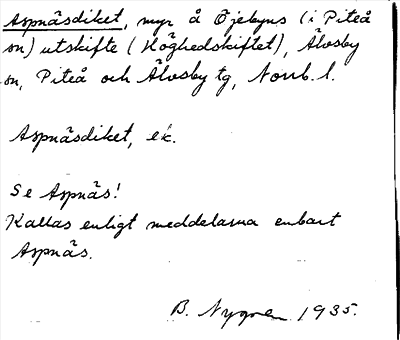 Aspnäsdiket, myr å Öjebyns (i Piteå
sn) utskifte (Höghedskiftet), Älvsby
sn, Piteå och Älvsby tg, Norrb. l.
Aspnäsdiket, ek.
Se Aspnäs!
Kallas enligt meddelarna enbart
Aspnäs.
B. Nygren 1935.